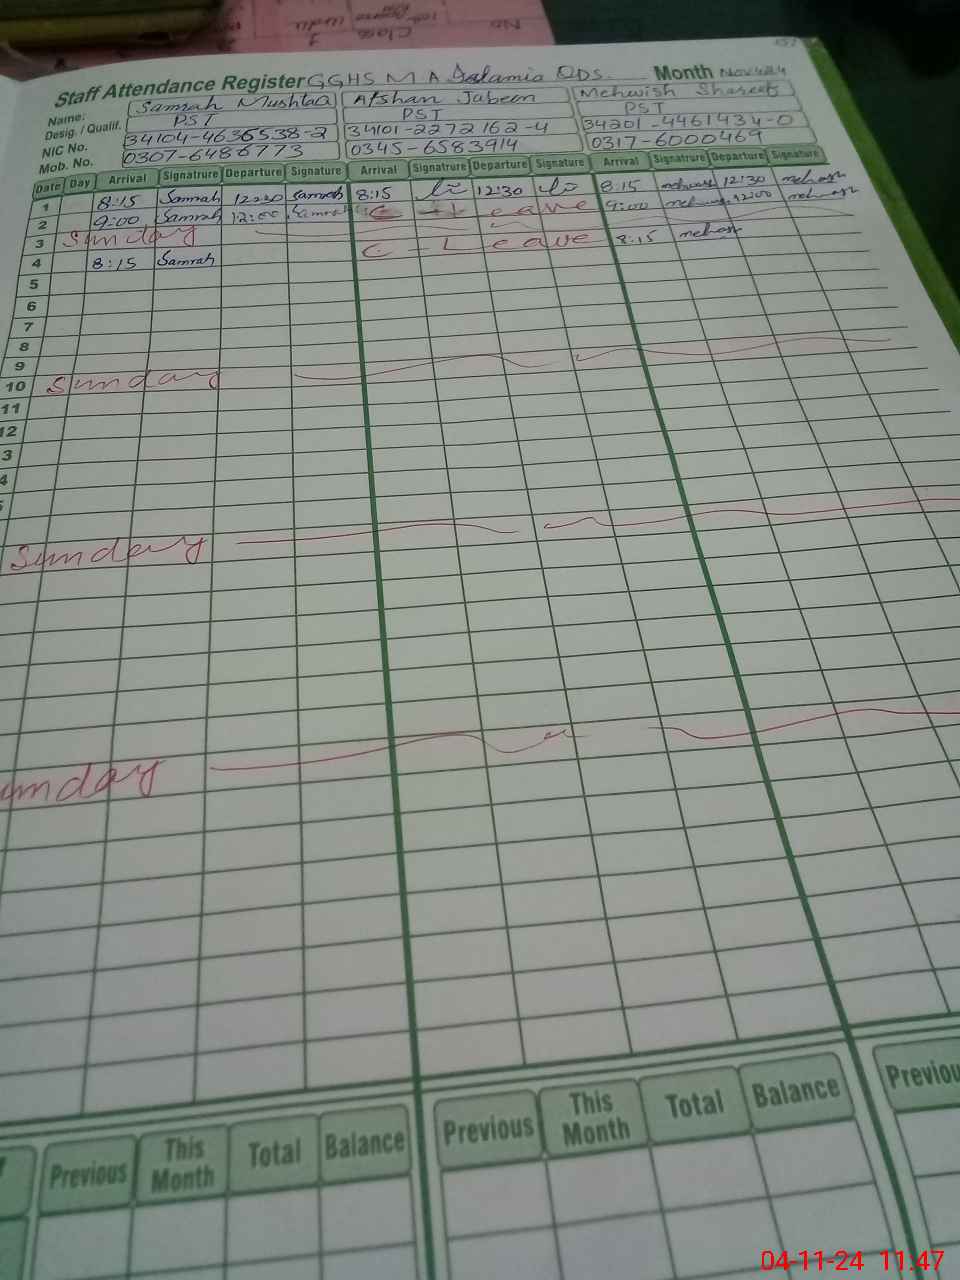 No
Class
Staff Attendance Register GGHS M A Islamia QDS. Month Nov 24
Name: Samrah Mushtaq Afshan Jabeen Mehwish Shareef
Desig. / Qualif. PST PST PST
NIC No. 34104-4636538-2 34101-2272162-4 34201-4461434-0
Mob. No. 0307-6486773 0345-6583914 0317-6000469
Date Day Arrival Signatrure Departure Signature Arrival Signatrure Departure Signature Arrival Signatrure Departure Signature
1 8:15 Samrah 12:30 Samrah 8:15 12:30 8:15 mehwish 12:30 mehwish
2 9:00 Samrah 12:00 Samrah C - Leave 9:00 mehwish 12:00 mehwish
3 Sunday
4 8:15 Samrah C - Leave 8:15 mehwish
5
6
7
8
9
10 Sunday
11
12
3
4
Sunday
unday
Previous This Month Total Balance Previous This Month Total Balance Previou
04-11-24 11:47